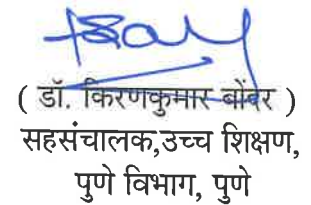 ( डॉ. किरणकुमार बोंदर )
सहसंचालक,उच्च शिक्षण,
पुणे विभाग, पुणे